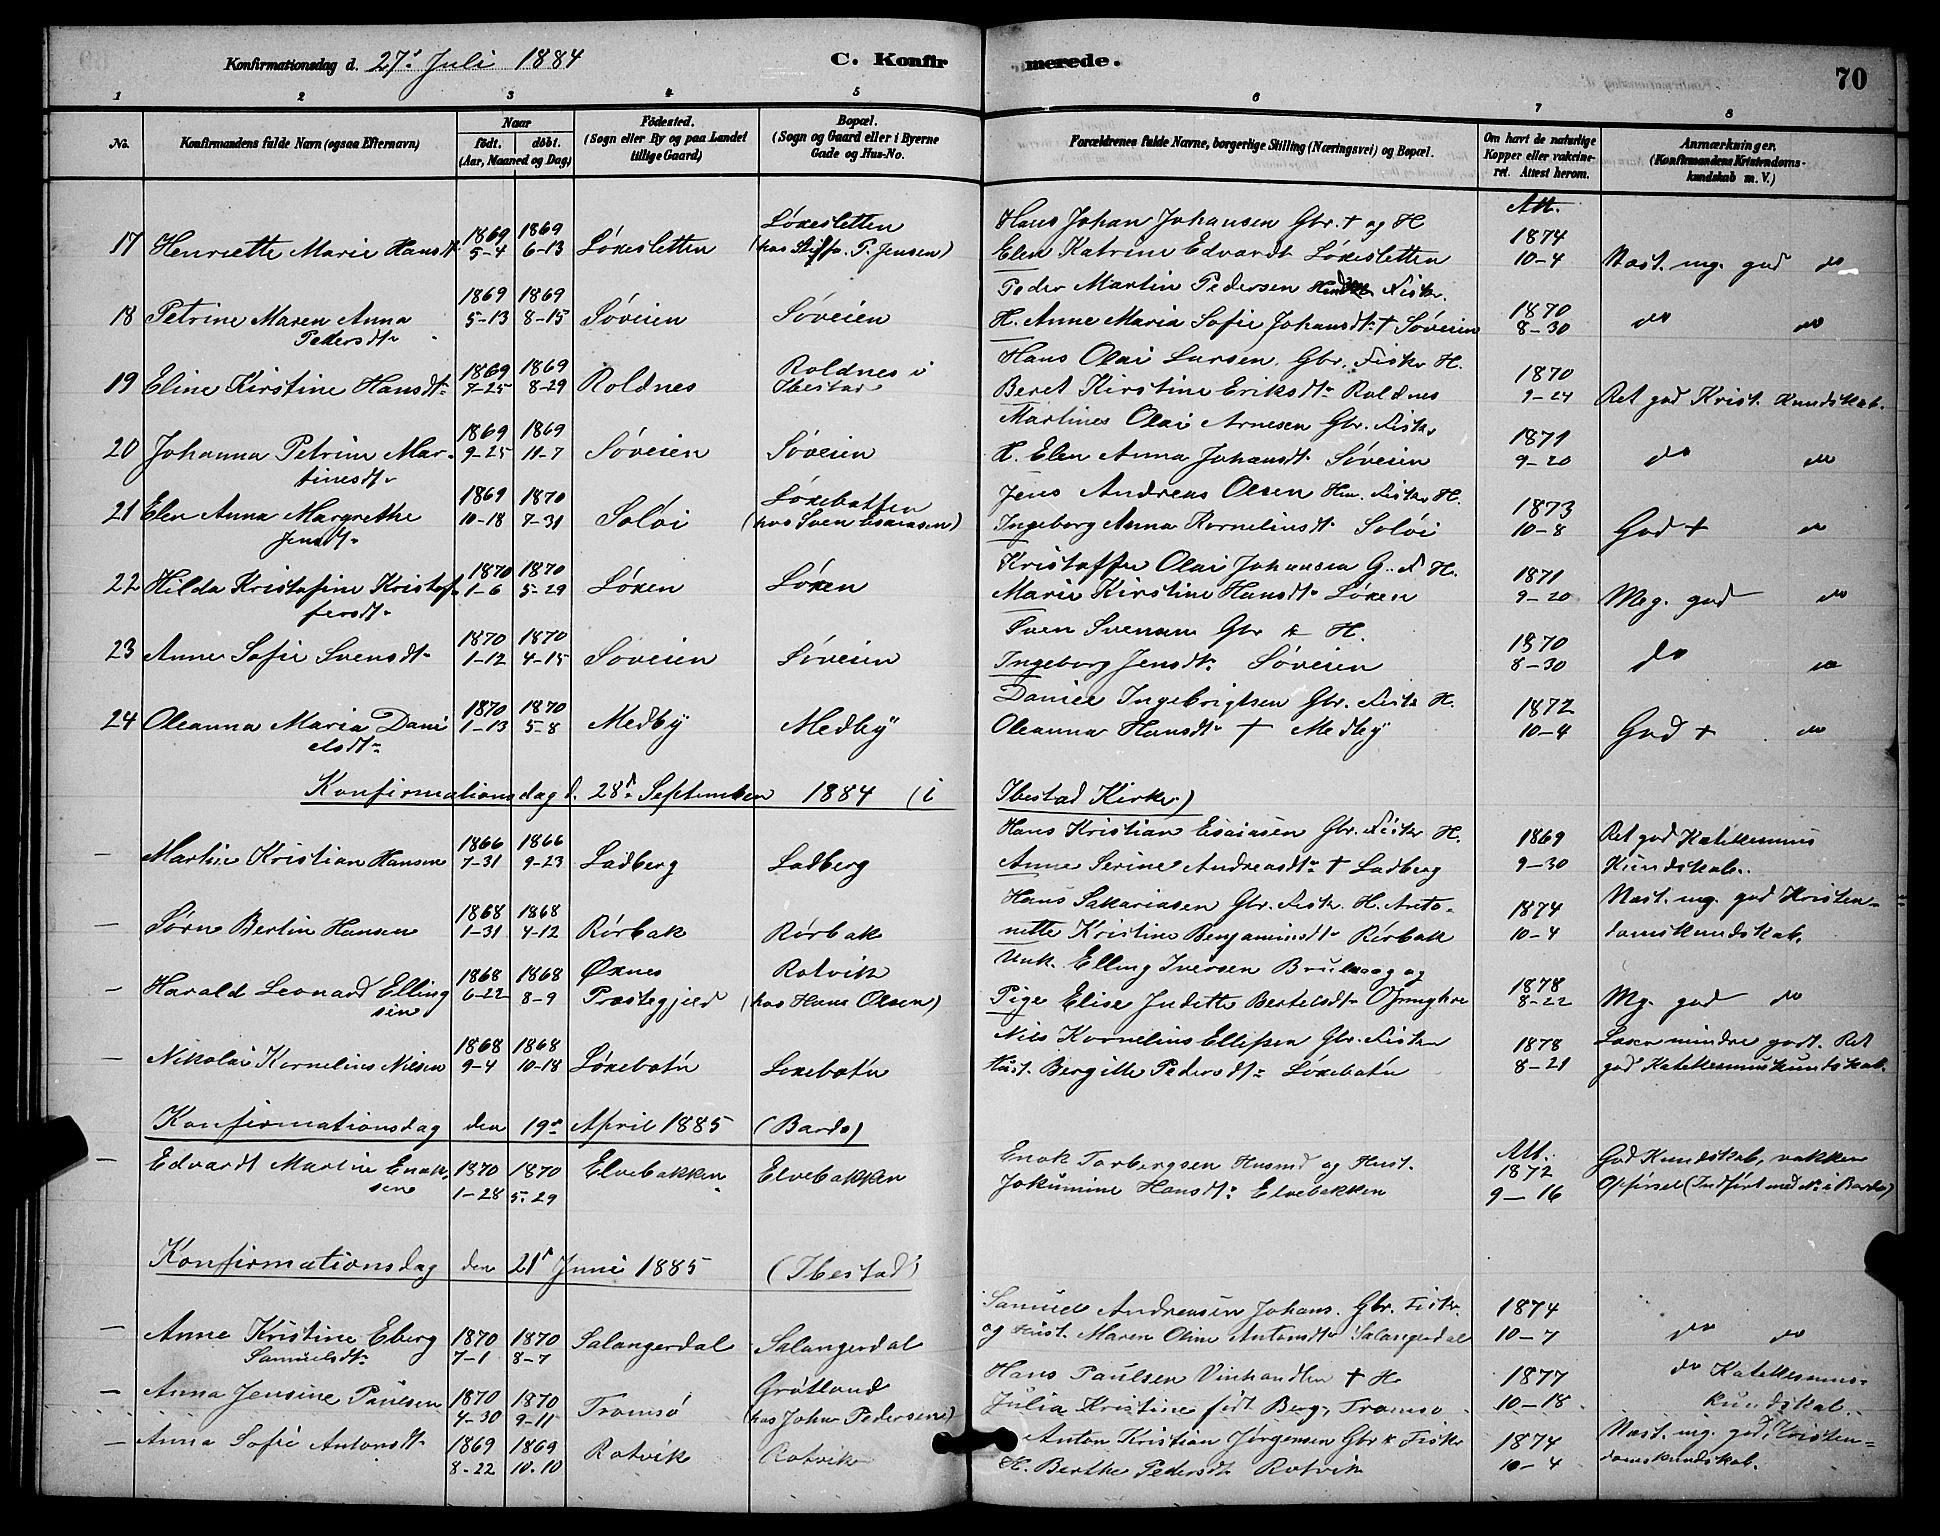 Konfirmationsdag d. 27de Juli 1884 C. Konfirmerede. 70
1 2 3 4 5 6 7 8
No. Konfirmandens fulde Navn (ogsaa Efternavn) Naar født. døbt. (Aar, Maaned og Dag) Fødested. (Sogn eller By og paa Landet tillige Gaard) Bopæl. (Sogn og Gaard eller i Byerne Gade og Hus-No. Forældrenes fulde Navne, borgerlige Stilling (Næringsvei) og Bopæl. Om havt de naturlige Kopper eller vakcineret. Attest herom. Anmærkninger. (Konfirmandens Kristendomskundskab m. V.)
Løxesletten Hans Johan Johansen Gbr. + og H Att.
17 Henriette Marie Hansdt 1869 5-4 1869 6-13 Løxesletten (hos P. Jensen) Elen Katrine Edvardt Løxesletten 1874 10-4 Næst. mg. god do
Peder Martin Pedersen Fisker
18 Petrine Maren Anna 1869 5-13 1869 8-15 Søveien Søveien H. Anne Maria Sofie Johansdt + Søveien 1870 8-30 do do
Pedersdt
Roldnes i Hans Olai Larsen Gbr. Fisker H.
19 Eline Kirstine Hansdt 1869 7-25 1869 8-29 Roldnes Ibestad Beret Kirstine Eriksdt Roldnes 1870 9-24 Ret god Krist. Kundskab.
Martines Olai Arnesen Gbr. Fisker
20 Johanna Petrine Mar- 1869 9-25 1869 11-7 Søveien Søveien H. Elen Anna Johansdt Søveien 1871 9-20 do do
tinesdt
Løxebotten Jens Andreas Olsen Hm. Fisker H.
21 Elen Anna Margrethe 1869 10-18 1870 7-31 Soløi (hos Sven Esaiasen) Ingeborg Anna Kornelinsdt Soløi 1873 10-8 God + do
Jensdt
Kristoffer Olai Johansen G. F. H.
22 Hilda Kristofine Kristof- 1870 1-6 1870 5-29 Løxen Løxen Marie Kirstine Hansdt Løxen 1871 9-20 Meg. god do
fersdt
Sven Svensen Gbr & H.
23 Anne Sofie Svensdt 1870 1-12 1870 4-15 Søveien Søveien Ingeborg Jensdt Søveien 1870 8-30 do do
Daniel Ingebrigtsen Gbr. Fisk. H.
24 Oleanna Maria Dani 1870 1-13 1870 5-8 Medby Medby Oleanna Hansdt + Medby 1872 10-4 God + do
elsdt
Konfirmationsdag d. 28de September 1884 (i Ibestad Kirke)
Hans Kristian Esaiasen Gbr. Fisker H. Ret god Katekesmus
— Martin Kristian Hansen 1866 7-31 1866 9-23 Ladberg Ladberg Anne Serine Andreasdt + Ladberg 1869 9-30 Kundskab.
Hans Sakariasen Gbr. Fisk. H. Anto- Næst. mg. god Kristen-
— Sørn Bertin Hansen 1868 1-31 1868 4-12 Rørbak Rørbak nette Kristine Benjaminsdt Rørbak 1874 10-4 domskundskab.
Øxnes Rotvik Unk. Elling Iversen og
— Harald Leonard Elling 1868 6-22 1868 8-9 Præstegjeld (hos Hans Olsen) Pige Elise Juditte Bertelsdt 1878 8-22 Mg. god do
sen
Nils Kornelius Ellefsen Gbr. Fisker Læser mindre godt. Ret
— Nikolai Kornelius Nilsen 1868 9-4 1868 10-18 Løxebotn Loxebotn Hust. Bergitte Pedersdt Løxebotn 1878 8-21 god Katekesmuskundskab.
Konfirmationsdag den 19de April 1885 (Bardo)
— Edvardt Martin Enok- 1870 1-28 1870 5-29 Elvebakken Elvebakken Enok Torbergsen Husmd og Hust. Att. God Kundskab, vakker
sen Jokumine Hansdt Elvebakken 1872 9-16 Opførsel (Indført med No i Bardo)
Konfirmationsdag den 21de Juni 1885 (Ibestad)
Samuel Andreasen Johans. Gbr. Fisker
— Anne Kristine Eberg 1870 7-1 1870 8-7 Salangerdal Salangerdal og Hust. Maren Oline Antonsdt Salangerdal 1874 10-7 do do
Samuelsdt
Grøtland Hans Paulsen Vinhandler + H. do Katekesmus-
— Anna Jensine Paulsen 1870 4-30 1870 9-11 Tromsø (hos John Pedersen) Julia Kristine født Berg, Tromsø 1877 10-18 kundskab.
Anton Kristian Jørgensen Gbr & Fisker Næst. mg. god Kristen-
— Anna Sofie Antonsdt 1869 8-22 1869 10-10 Rotvik Rotvik H. Berthe Pedersdt Rotvik 1874 10-4 domskundskab.